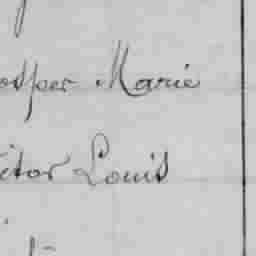 osper Marie
ictor Louis